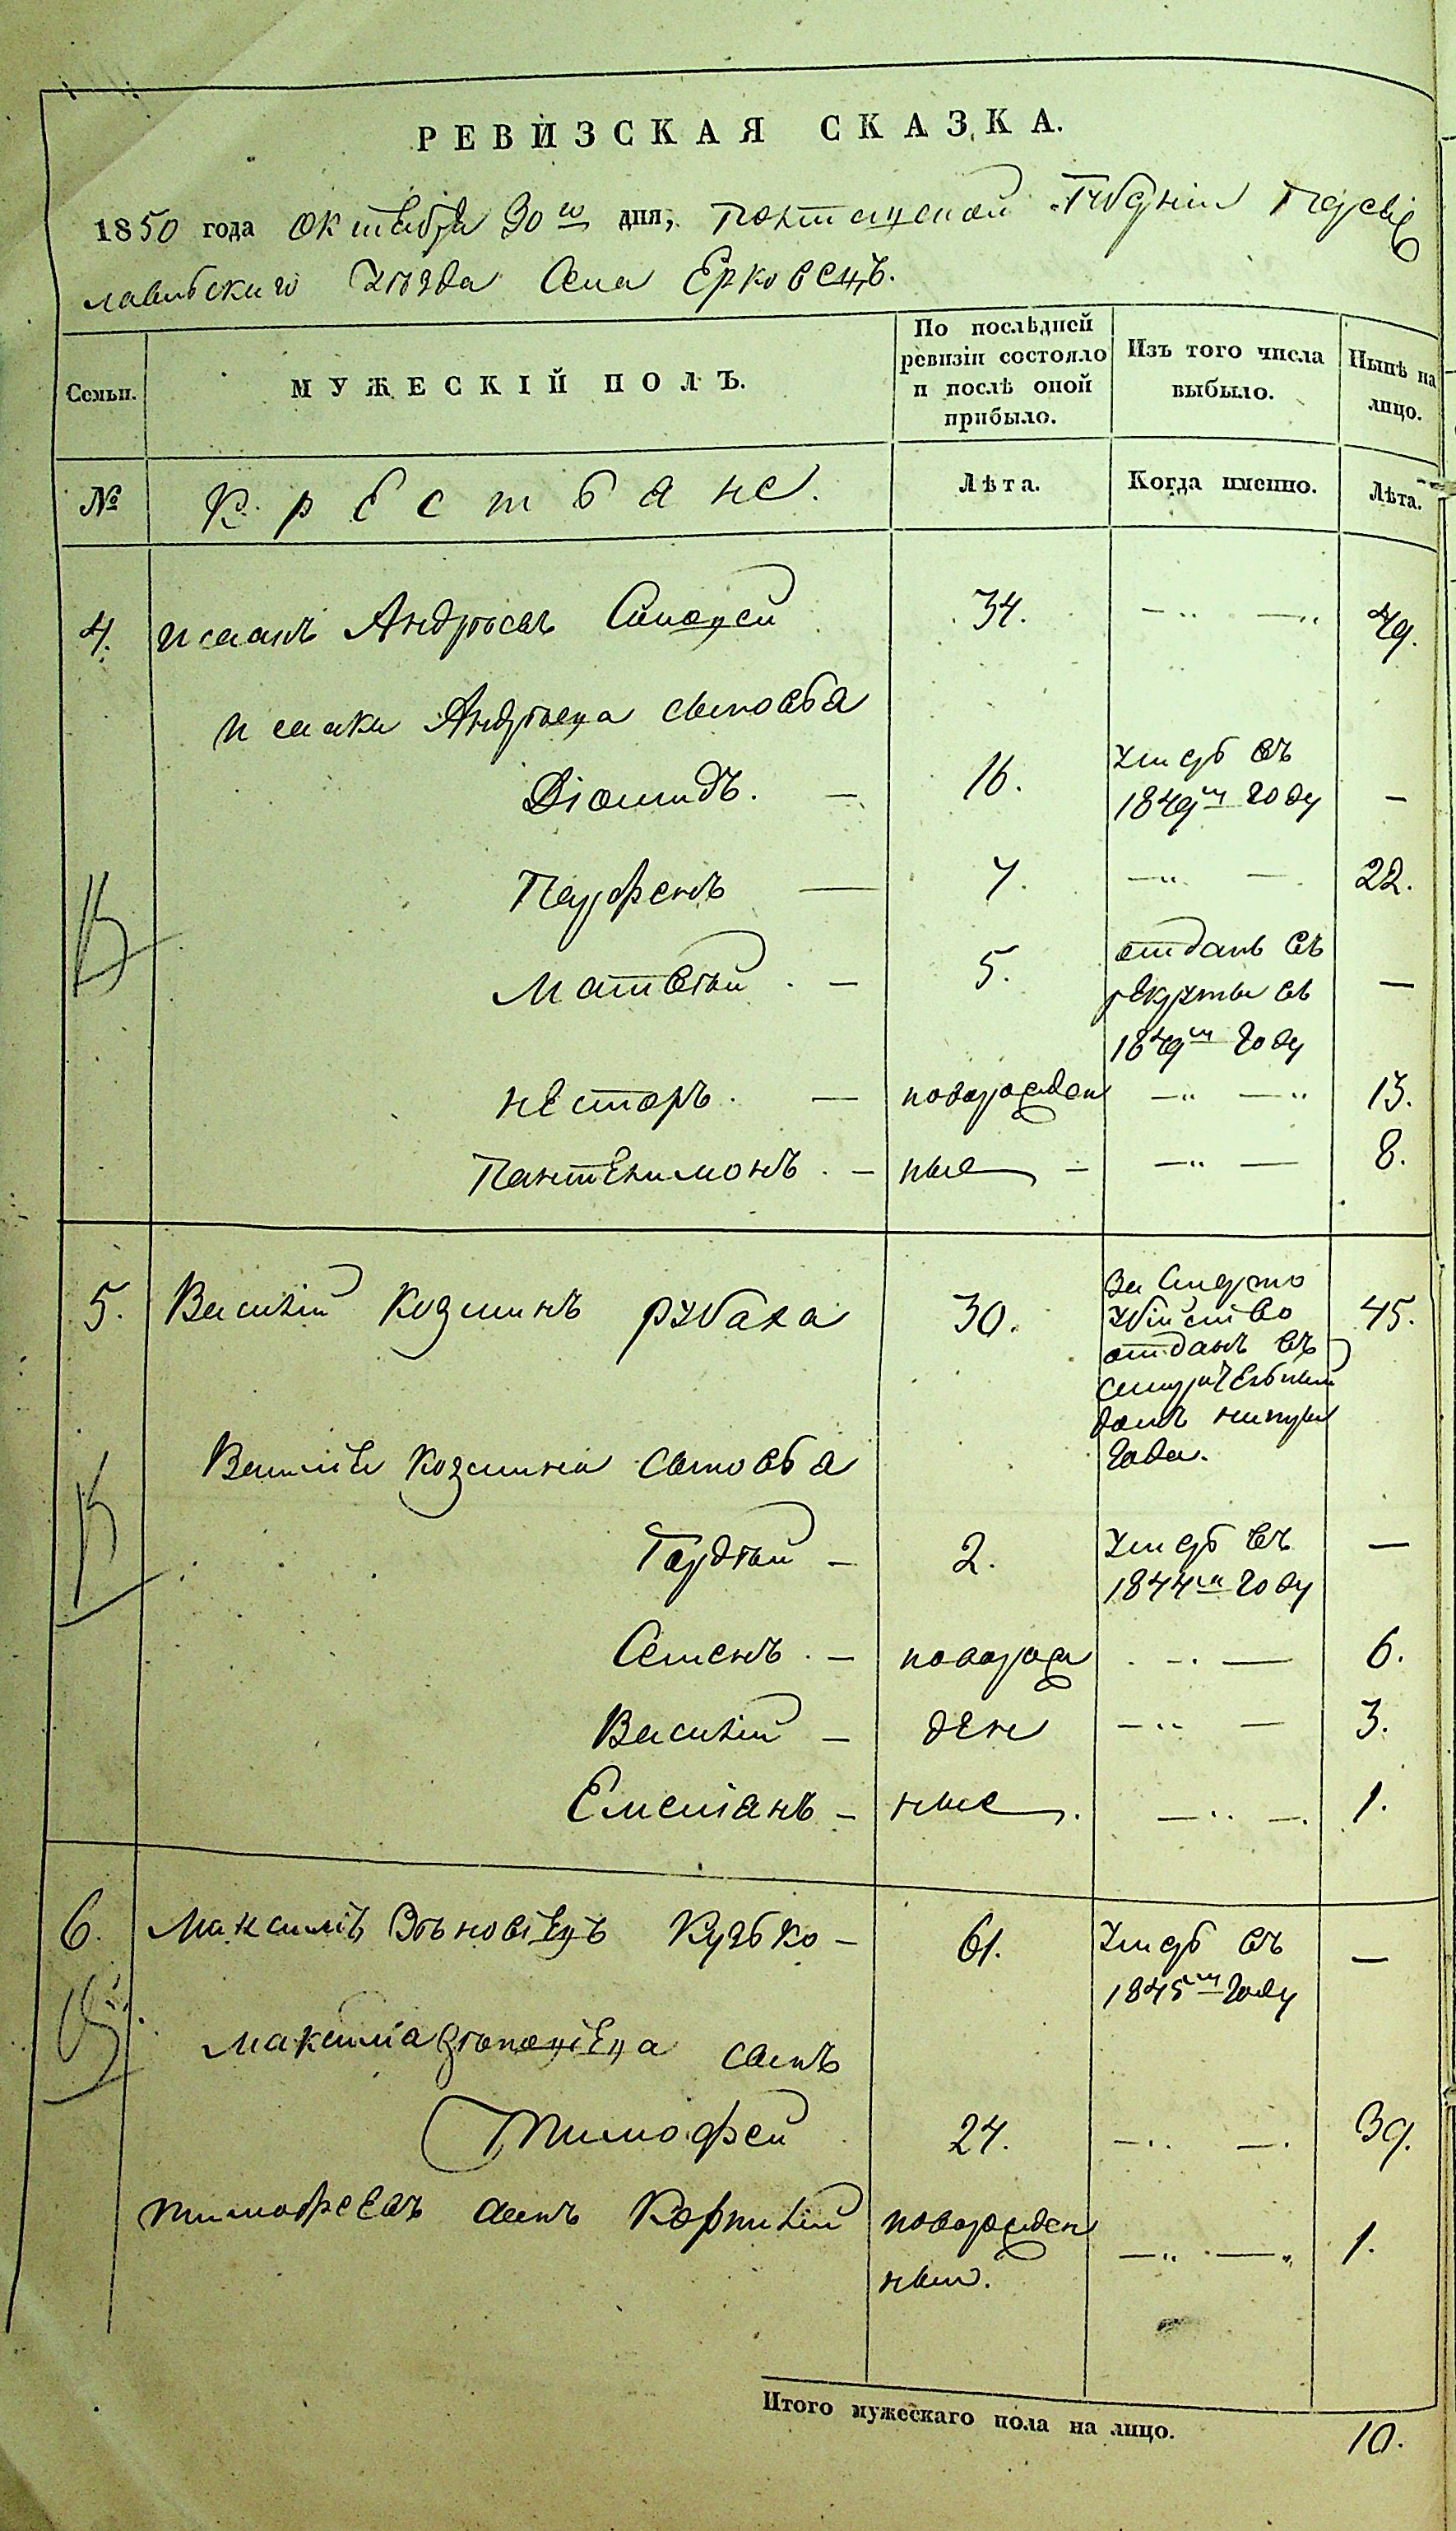 РЕВИЗСКАЯ СКАЗКА.
1850 года октября 30го дня, Полтавской Губернiи Переяс
лавського Уѣзда Села Ерковецъ.
Семьи.
МУЖЕСКІЙ ПОЛЪ.
По послѣдней
ревизіи состояло
и послѣ оной
прибыло.
Изъ того числа
выбыло.
Нынѣ на
лицо.
№
Крестьяне.
Лѣта.
Когда именно.
Лѣта.
4. Исаакъ Андрѣевъ 34. 49.
Исаака Андрѣева сыновья
Діомидъ. — 16. Умеръ въ
1849м году —
Парфенъ — 7. 22.
Матвѣй. — 5. отданъ въ
рекруты въ
1849м году —
Несторъ. — новорожден 13.
Пантелимонъ. — ные — 8.
5. Василій Козминъ Рубаха 30. За смерто
убійство
отданъ въ
домъ
года. 45.
Василія Козмина сыновья
Гордѣй — 2. Умеръ въ
1844м году —
Семенъ. — новорож 6.
Василій — ден 3.
Емеліанъ — ные. 1.
6. Максимъ Зѣновіевъ — 61. Умеръ въ
1845м году —
Максима Зѣновіева сынъ
Тимофей 24. 39.
Тимофеевъ сынъ новорожден
ный. 1.
Итого мужескаго пола на лицо. 10.